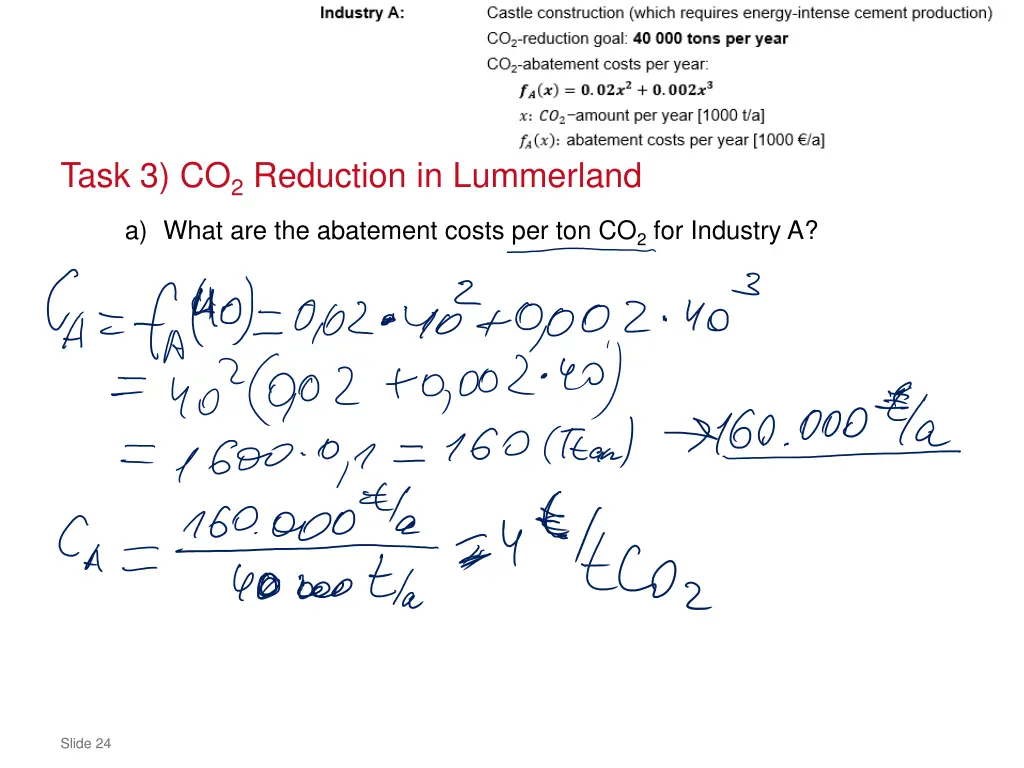 Industry A: Castle construction (which requires energy-intense cement production)
CO₂-reduction goal: 40 000 tons per year
CO₂-abatement costs per year:
f_A(x) = 0.02x² + 0.002x³
x: CO₂−amount per year [1000 t/a]
f_A(x): abatement costs per year [1000 €/a]
Task 3) CO₂ Reduction in Lummerland
a) What are the abatement costs per ton CO₂ for Industry A?
C_A = f_A(40) = 0,02 · 40² + 0,002 · 40³
= 40² (0,02 + 0,002 · 40)
= 1600 · 0,1 = 160 → 160.000 €/a
C_A = 160.000 €/a / 40 000 t/a = 4 €/tCO₂
Slide 24